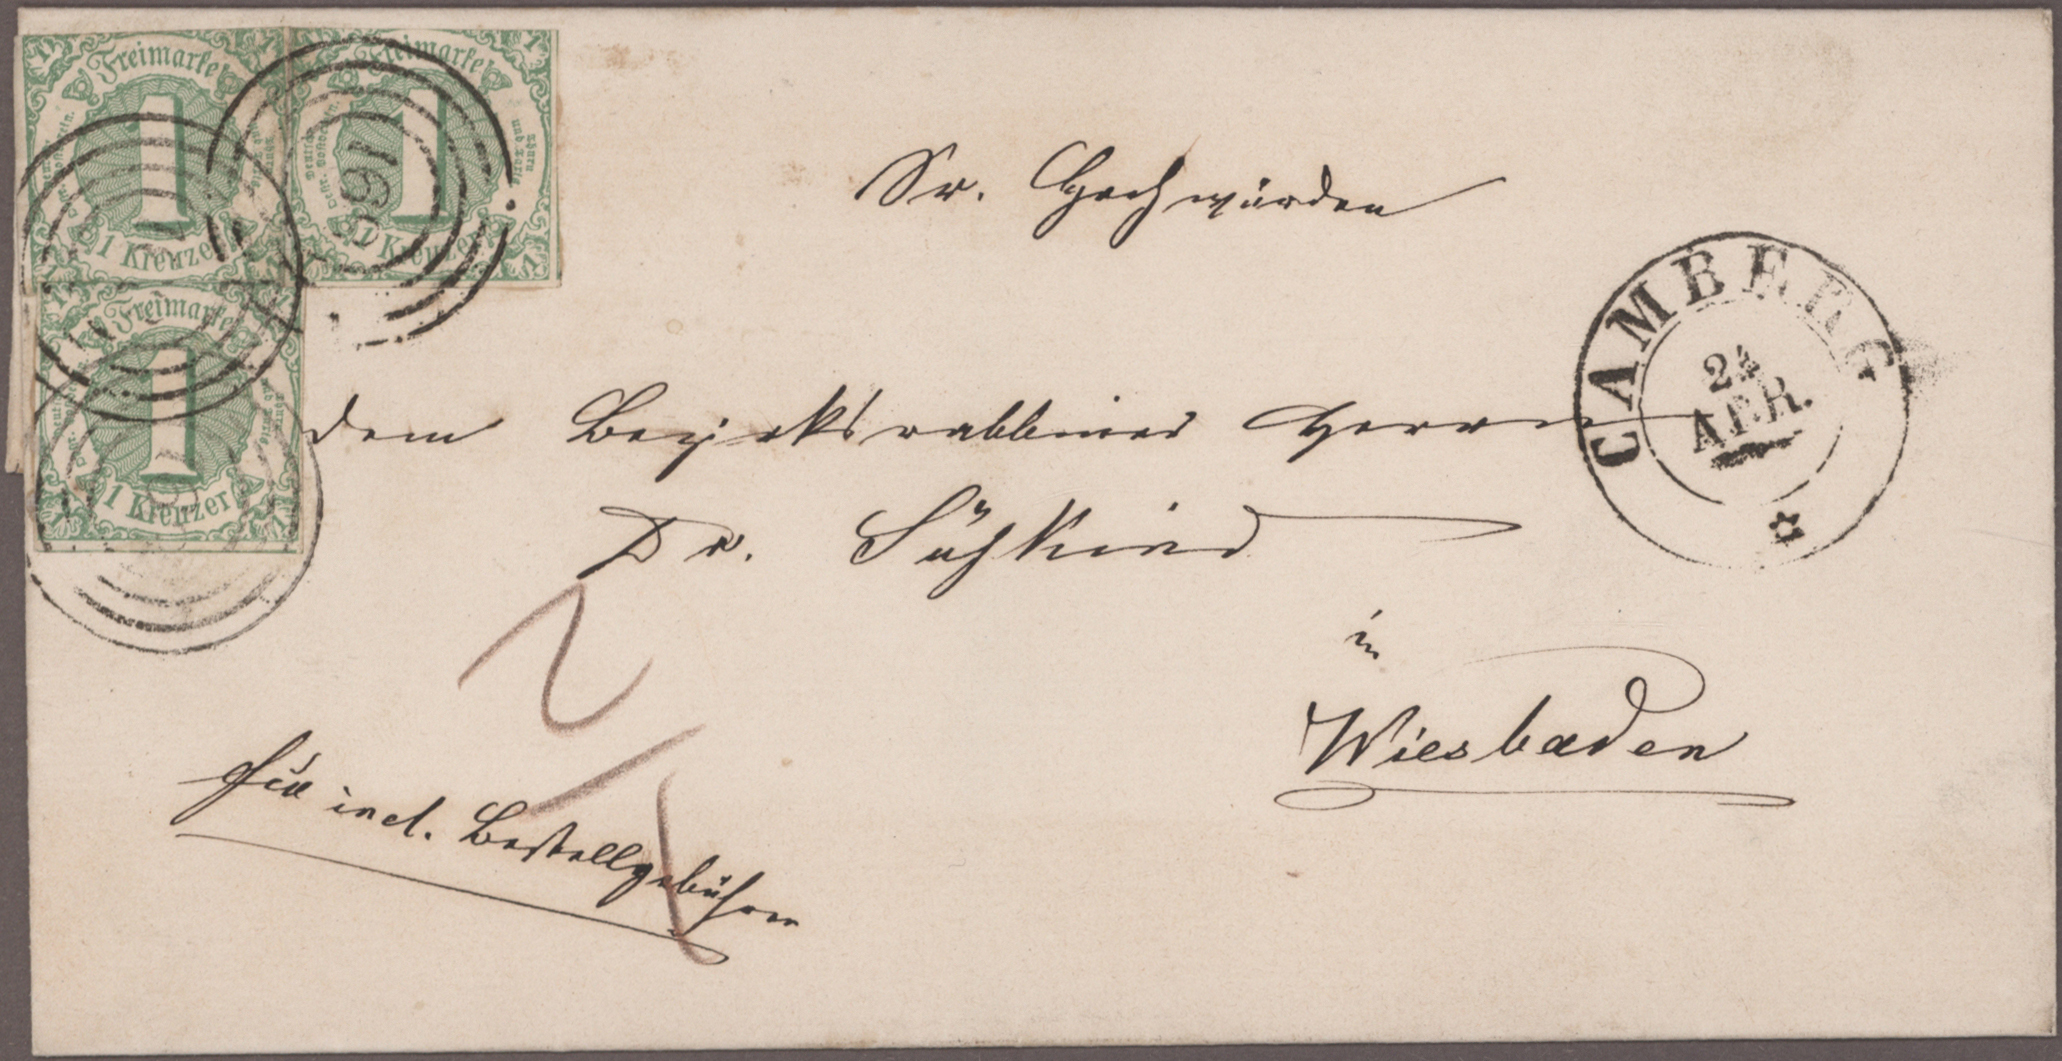 Freimarke
1
1 Kreuzer
Freimarke
1
1 Kreuzer
Thurn
und Taxis
Freimarke
1
1 Kreuzer
169
Sr. Hochwürden
dem Bezirksrabbiner Herrn
Dr. Süskind
in
Wiesbaden
CAMBERG
24
APR.
2
1
frei incl. Bestellgebühren